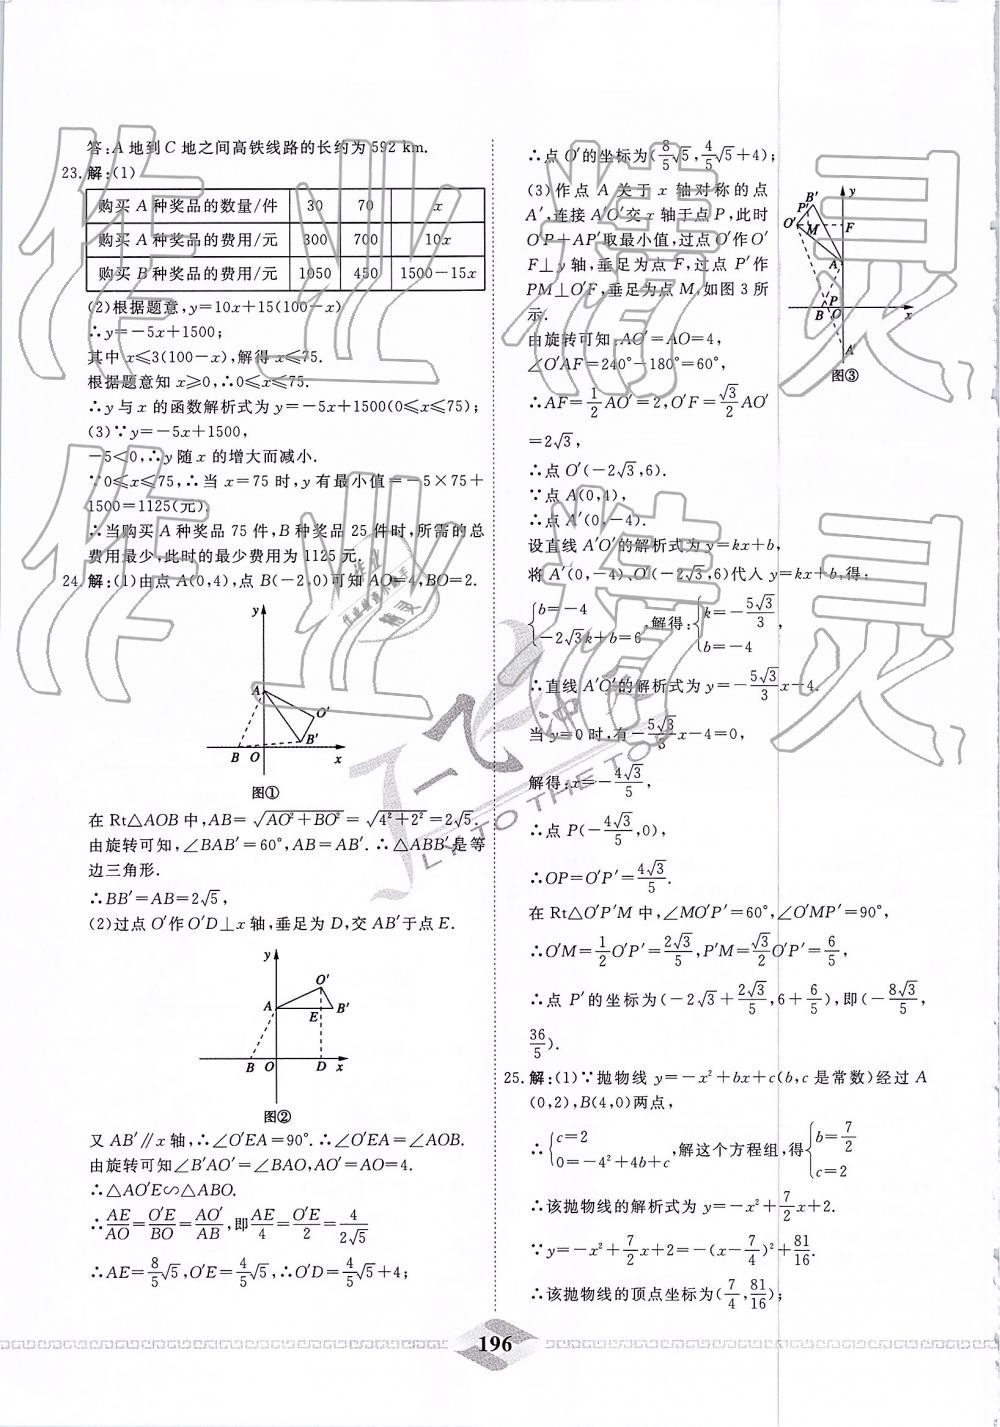 答:A 地到 C 地之间高铁线路的长约为 592 km.
23.解:(1)
购买 A 种奖品的数量/件 30 70 x
购买 A 种奖品的费用/元 300 700 10x
购买 B 种奖品的费用/元 1050 450 1500-15x
(2)根据题意,y=10x+15(100-x)
∴y=-5x+1500;
其中 x≤3(100-x),解得 x≤75.
根据题意知 x≥0,∴0≤x≤75.
∴y 与 x 的函数解析式为 y=-5x+1500(0≤x≤75);
(3)∵y=-5x+1500,
-5<0,∴y 随 x 的增大而减小.
∵0≤x≤75,∴当 x=75 时,y 有最小值=-5×75+
1500=1125(元).
∴当购买 A 种奖品 75 件,B 种奖品 25 件时,所需的总
费用最少,此时的最少费用为 1125 元.
24.解:(1)由点 A(0,4),点 B(-2,0)可知 AO=4,BO=2.
y
A
O′
B′
B O x
图①
在 Rt△AOB 中,AB=√(AO²+BO²)=√(4²+2²)=2√5.
由旋转可知,∠BAB′=60°,AB=AB′.∴△ABB′是等
边三角形.
∴BB′=AB=2√5,
(2)过点 O′作 O′D⊥x 轴,垂足为 D,交 AB′于点 E.
y
O′
A E B′
B O D x
图②
又 AB′∥x 轴,∴∠O′EA=90°.∴∠O′EA=∠AOB.
由旋转可知∠B′AO′=∠BAO,AO′=AO=4.
∴△AO′E∽△ABO.
∴AE/AO=O′E/BO=AO′/AB,即AE/4=O′E/2=4/(2√5)
∴AE=8/5√5,O′E=4/5√5,∴O′D=4/5√5+4;
∴点 O′的坐标为(8/5√5,4/5√5+4);
(3)作点 A 关于 x 轴对称的点
A′,连接 A′O′交 x 轴于点 P,此时
OP+AP′取最小值,过点 O′作 O′
F⊥y 轴,垂足为点 F,过点 P′作
PM⊥O′F,垂足为点 M,如图 3 所
示.
y
B′
P′
O′ M F
A
P
B O x
A′
图③
由旋转可知,AO′=AO=4,
∠O′AF=240°-180°=60°,
∴AF=1/2AO′=2,O′F=√3/2AO′
=2√3,
∴点 O′(-2√3,6).
∵点 A(0,4),
∴点 A′(0,-4).
设直线 A′O′的解析式为 y=kx+b,
将 A′(0,-4)、O′(-2√3,6)代入 y=kx+b,得:
{b=-4 -2√3k+b=6,解得:{k=-5√3/3 b=-4,
∴直线 A′O′的解析式为 y=-5√3/3x-4.
当 y=0 时,有-5√3/3x-4=0,
解得:x=-4√3/5,
∴点 P(-4√3/5,0),
∴OP=O′P′=4√3/5.
在 Rt△O′P′M 中,∠MO′P′=60°,∠O′MP′=90°,
∴O′M=1/2O′P′=2√3/5,P′M=√3/2O′P′=6/5,
∴点 P′的坐标为(-2√3+2√3/5,6+6/5),即(-8√3/5,
36/5).
25.解:(1)∵抛物线 y=-x²+bx+c(b,c 是常数)经过 A
(0,2),B(4,0)两点,
∴{c=2 0=-4²+4b+c,解这个方程组,得{b=7/2 c=2
∴该抛物线的解析式为 y=-x²+7/2x+2.
∵y=-x²+7/2x+2=-(x-7/4)²+81/16.
∴该抛物线的顶点坐标为(7/4,81/16);
196
作业精灵
作业精灵
一飞冲
LY TO THE TOP